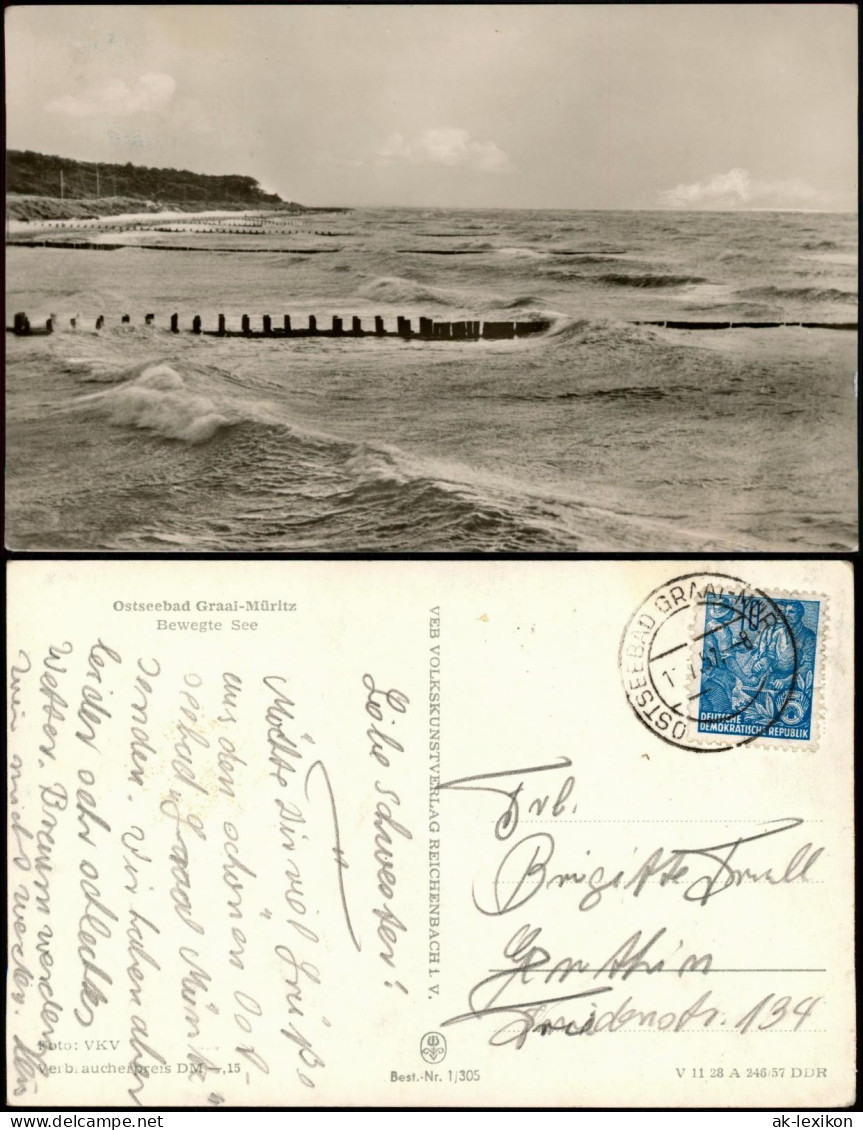 Ostseebad Graal-Müritz
Bewegte See
Liebe Schwester!
Möchte Dir viel Grüße
aus den schönen Ost-
seebad „Graal Müritz“
senden. Wir haben aber
leider sehr schlechtes
Wetter. Braun werden
wir nicht werden.
Foto: VKV
Verbraucherpreis DM —,15
VEB VOLKSKUNSTVERLAG REICHENBACH i. V.
Best.-Nr. 1/305
OSTSEEBAD GRAAL-MÜR
10
DEUTSCHE
DEMOKRATISCHE REPUBLIK
Frl.
Brigitte
Genthin
134
V 11 28 A 246/57 DDR
www.ansichtskarten-lexikon.de
ak-lexikon